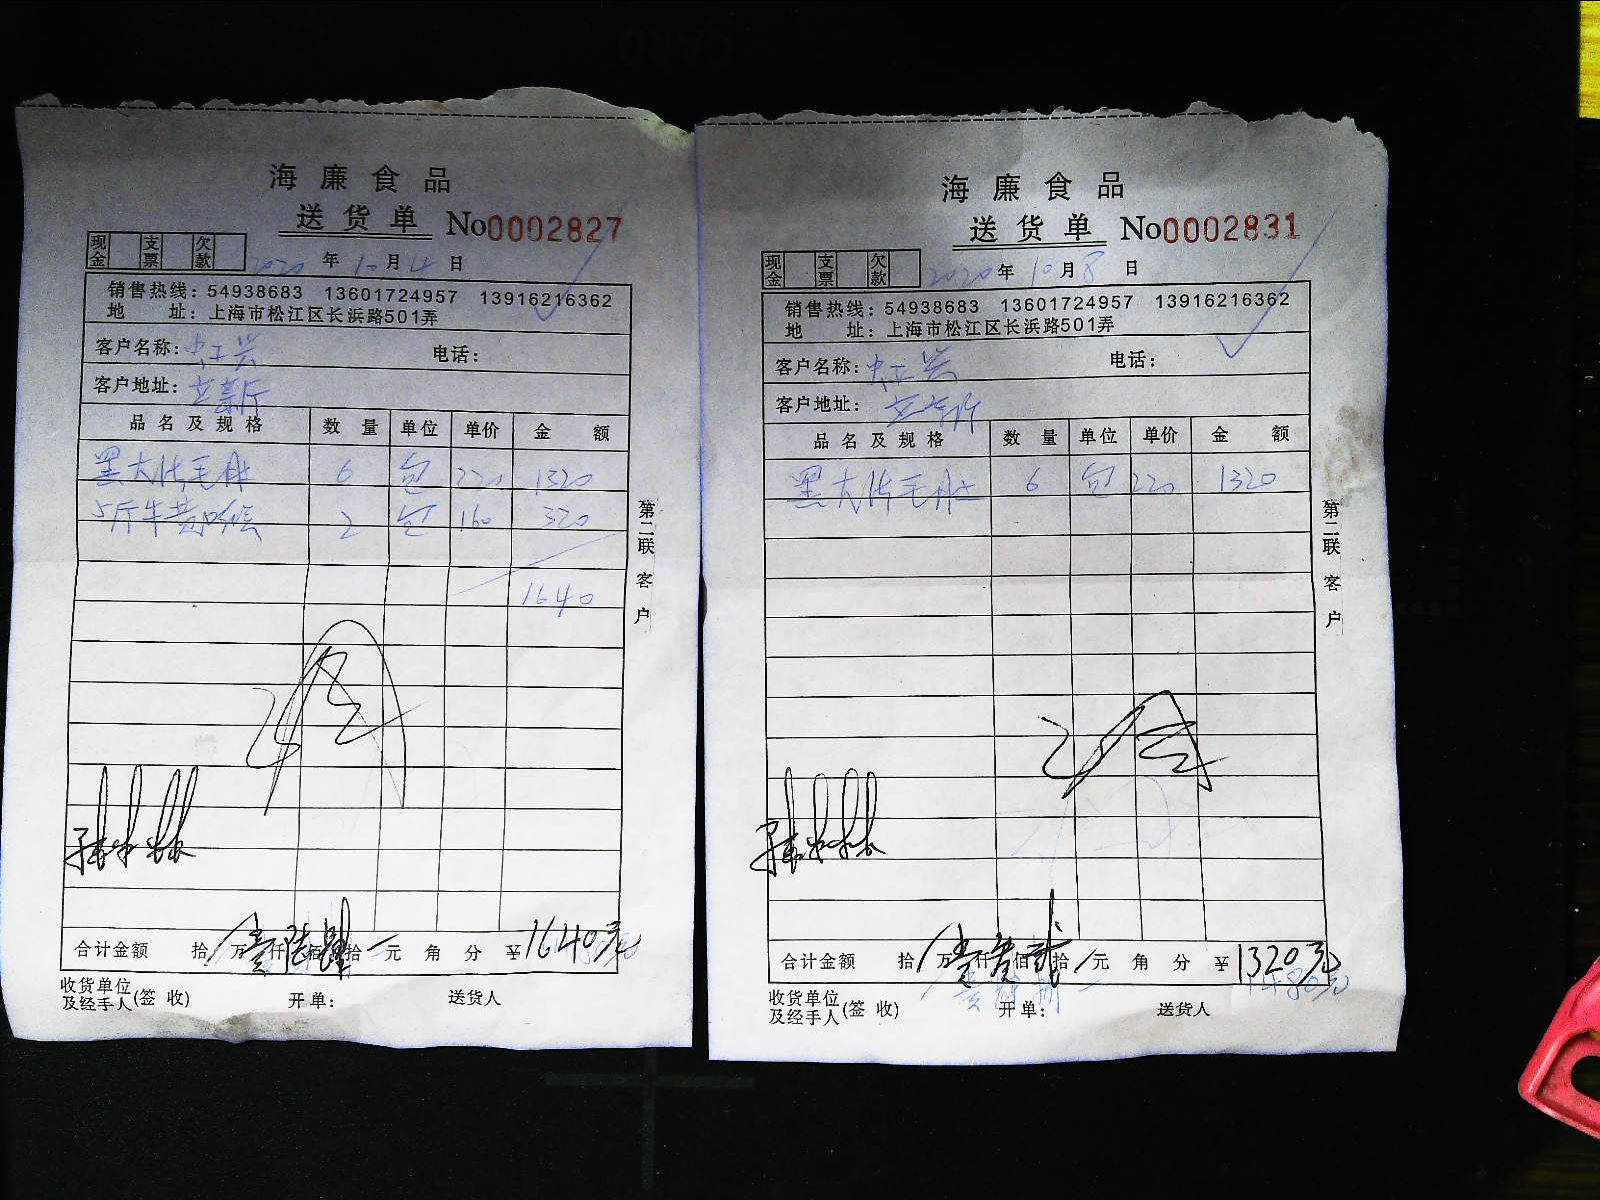 海廉食品
送货单 No0002827
现金 支票 欠款
2020年10月4日
销售热线：54938683 13601724957 13916216362
地 址：上海市松江区长浜路501弄
客户名称：
电话：
客户地址：
品名及规格 数量 单位 单价 金额
黑大 毛肚 6 包 220 1320
5斤牛黄喉 2 包 160 320
1640
合计金额 拾 万 壹仟陆佰肆拾 元 角 分 ￥1640元
收货单位及经手人(签收) 开单： 送货人
第二联 客户
海廉食品
送货单 No0002831
现金 支票 欠款
2020年10月8日
销售热线：54938683 13601724957 13916216362
地 址：上海市松江区长浜路501弄
客户名称：
电话：
客户地址：
品名及规格 数量 单位 单价 金额
黑大 毛肚 6 包 220 1320
合计金额 拾 万 壹仟叁佰贰拾 元 角 分 ￥1320元
1480元
收货单位及经手人(签收) 开单： 送货人
第二联 客户